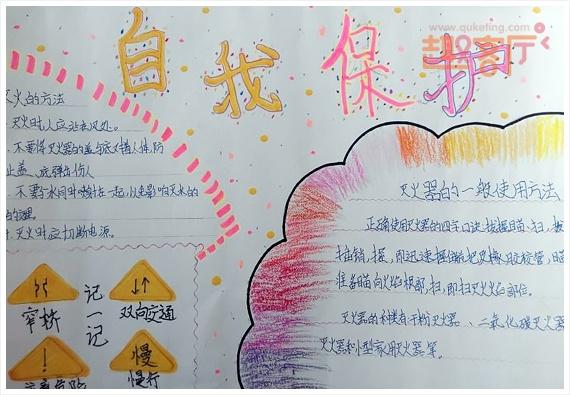 www.quketing.com
自我保护
灭火的方法
灭火时人应站在风处。
不要将灭火器的盖与底对着人体,防
止盖、底弹出伤人
不要与水同时喷射在一起,以免影响灭火的
灭火时应切断电源。
记一记
窄桥
双向交通
注意危险
慢
慢行
灭火器的一般使用方法
正确使用灭火器的四字口诀:拔握瞄扫,拔
抽销,握,即迅速握
准备瞄向火焰根部,扫,即扫灭火焰部位。
灭火器的种类有干粉灭火器、二氧化碳灭火器
灭火器和小型家用灭火器等。